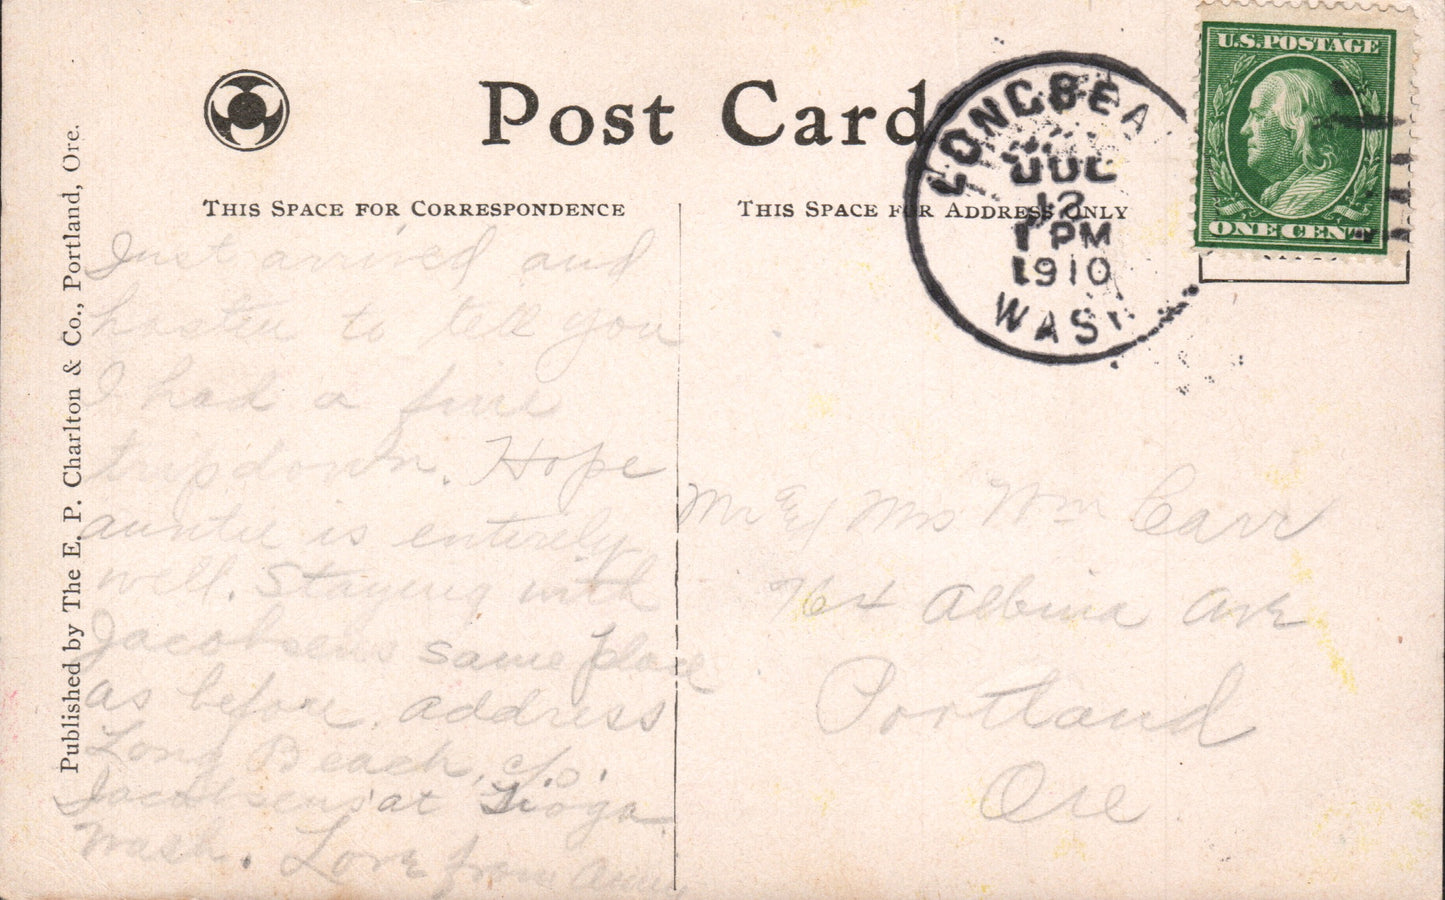 Post Card
THIS SPACE FOR CORRESPONDENCE
THIS SPACE FOR ADDRESS ONLY
Published by The E. P. Charlton & Co., Portland, Ore.
U.S. POSTAGE
ONE CENT
LONG BEA
JUL
12
1 PM
1910
WASH
Just arrived and
hasten to tell you
I had a fine
trip down. Hope
auntie is entirely
well. Staying with
Jacobsens same place
as before. address
Long Beach, c/o.
Jacobsens at Tioga
Wash. Love from
Mr & Mrs Wm Carr
764 Albina Ave
Portland
Ore